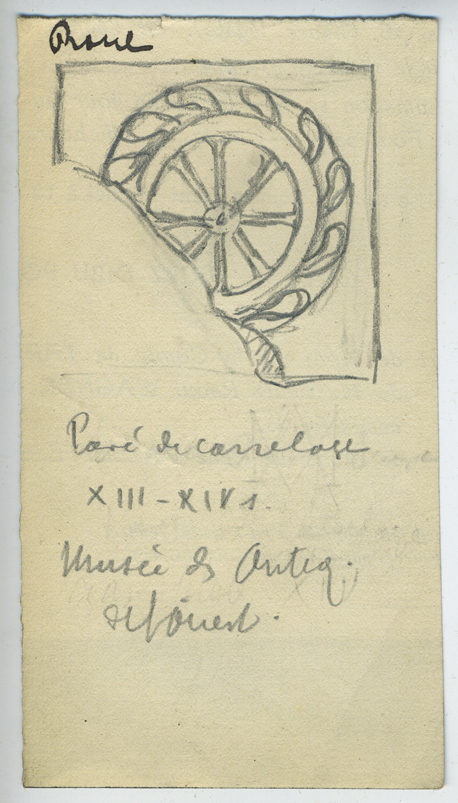 Roue
Pavé de carrelage
XIII - XIV s.
Musée ds Antiq.
de l'Ouest.